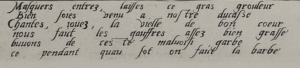 Masquers entrez, laisses ce gras grondeur
Bien soies venu a nostre ducasse
Chantes, jouez, la vielle de bon coeur
nous faut les gauffres asses bien grasse
buuons de ceste malvoisy garbe
ce pendant quau sot on faict la barbe